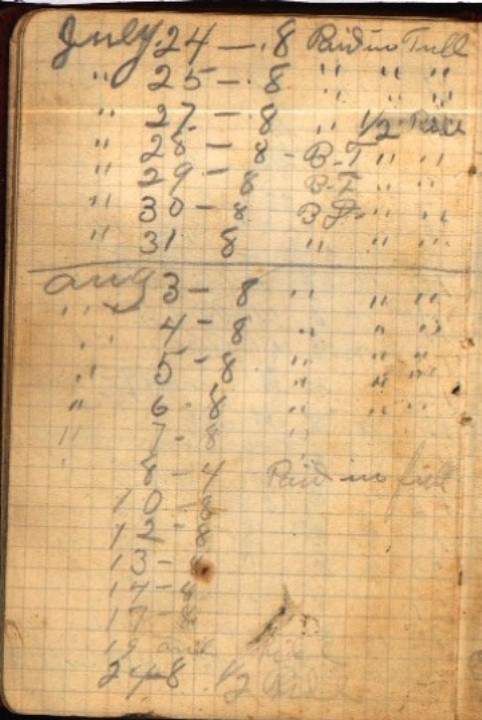 July 24 — 8 Paid in Full
" 25 — 8 " " "
" 27 — 8 " 1/2 Paid
" 28 — 8 - B-T " "
" 29 — 8 B-T
" 30 — 8 B " "
" 31 8 " " "
Aug 3 — 8 " " "
" 4 - 8 " " "
" 5 - 8 " " "
" 6 - 8 " " "
" 7 - 8 "
8 - 4 Paid in full
10 - 8
12 - 8
13 - 8
14 - 8
17 - 8
19
24-8 1/2 Paid